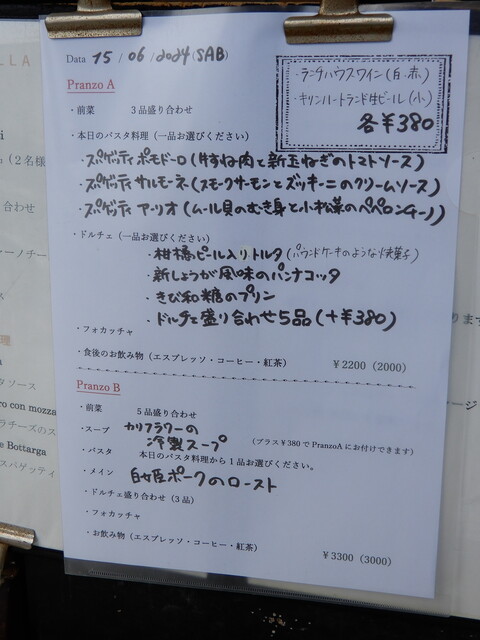 Data 15 / 06 / 2024 (SAB)
・ランチハウスワイン(白・赤)
・キリンハートランド生ビール(小)
各¥380
Pranzo A
・前菜 3品盛り合わせ
・本日のパスタ料理(一品お選びください)
・スパゲッティ ポモドーロ(牛すね肉と新玉ねぎのトマトソース)
・スパゲッティ サルモーネ(スモークサーモンとズッキーニのクリームソース)
・スパゲッティ アーリオ(ムール貝のむき身と小松菜のペペロンチーノ)
・ドルチェ(一品お選びください)
・柑橘ピール入りトルタ(パウンドケーキのような焼菓子)
・新しょうが風味のパンナコッタ
・きび和糖のプリン
・ドルチェ盛り合わせ5品(+¥380)
・フォカッチャ
・食後のお飲み物(エスプレッソ・コーヒー・紅茶) ¥2200(2000)
Pranzo B
・前菜 5品盛り合わせ
・スープ カリフラワーの冷製スープ (プラス¥380でPranzoAにお付けできます)
・パスタ 本日のパスタ料理から1品お選びください。
・メイン 白姫ポークのロースト
・ドルチェ盛り合わせ(3品)
・フォカッチャ
・お飲み物(エスプレッソ・コーヒー・紅茶) ¥3300(3000)
LLA
(2名様
合わせ
ソース
ro con mozza
ラチーズのス
e Bottarga
スパゲッティ